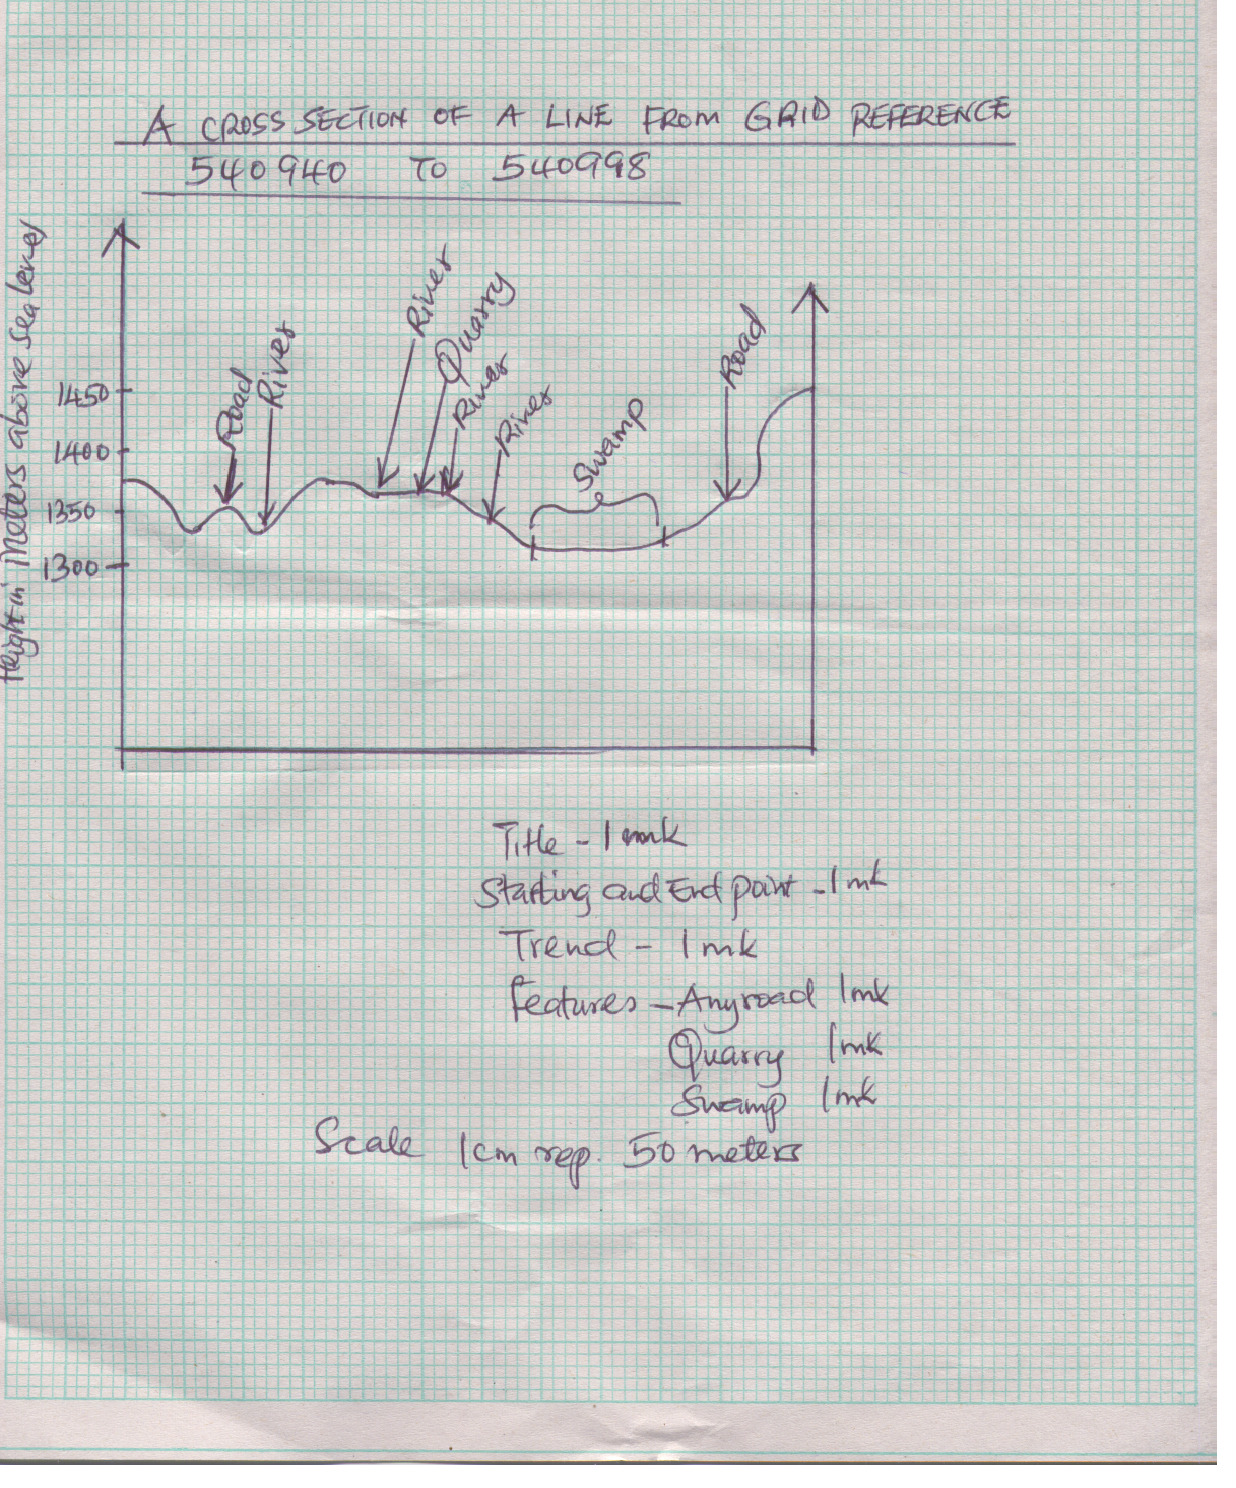 A CROSS SECTION OF A LINE FROM GRID REFERENCE
540940 TO 540998
Height in Meters above sea level
1450
1400
1350
1300
Road
River
River
Quarry
River
River
Swamp
Road
Title - 1 mk
Starting and End point - 1 mk
Trend - 1 mk
Features - Any road 1mk
Quarry 1mk
Swamp 1mk
Scale 1cm rep. 50 meters